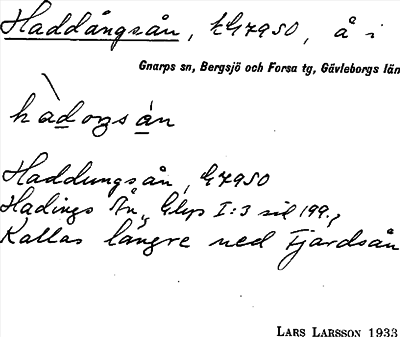 Haddångsån, G7950, å i
Gnarps sn, Bergsjö och Forsa tg, Gävleborgs län
hàdongsán
Haddungsån, G7950
Hadings Ån, Glys I:3 sid 199.,
Kallas längre ned Fjärdsån
LARS LARSSON 1933